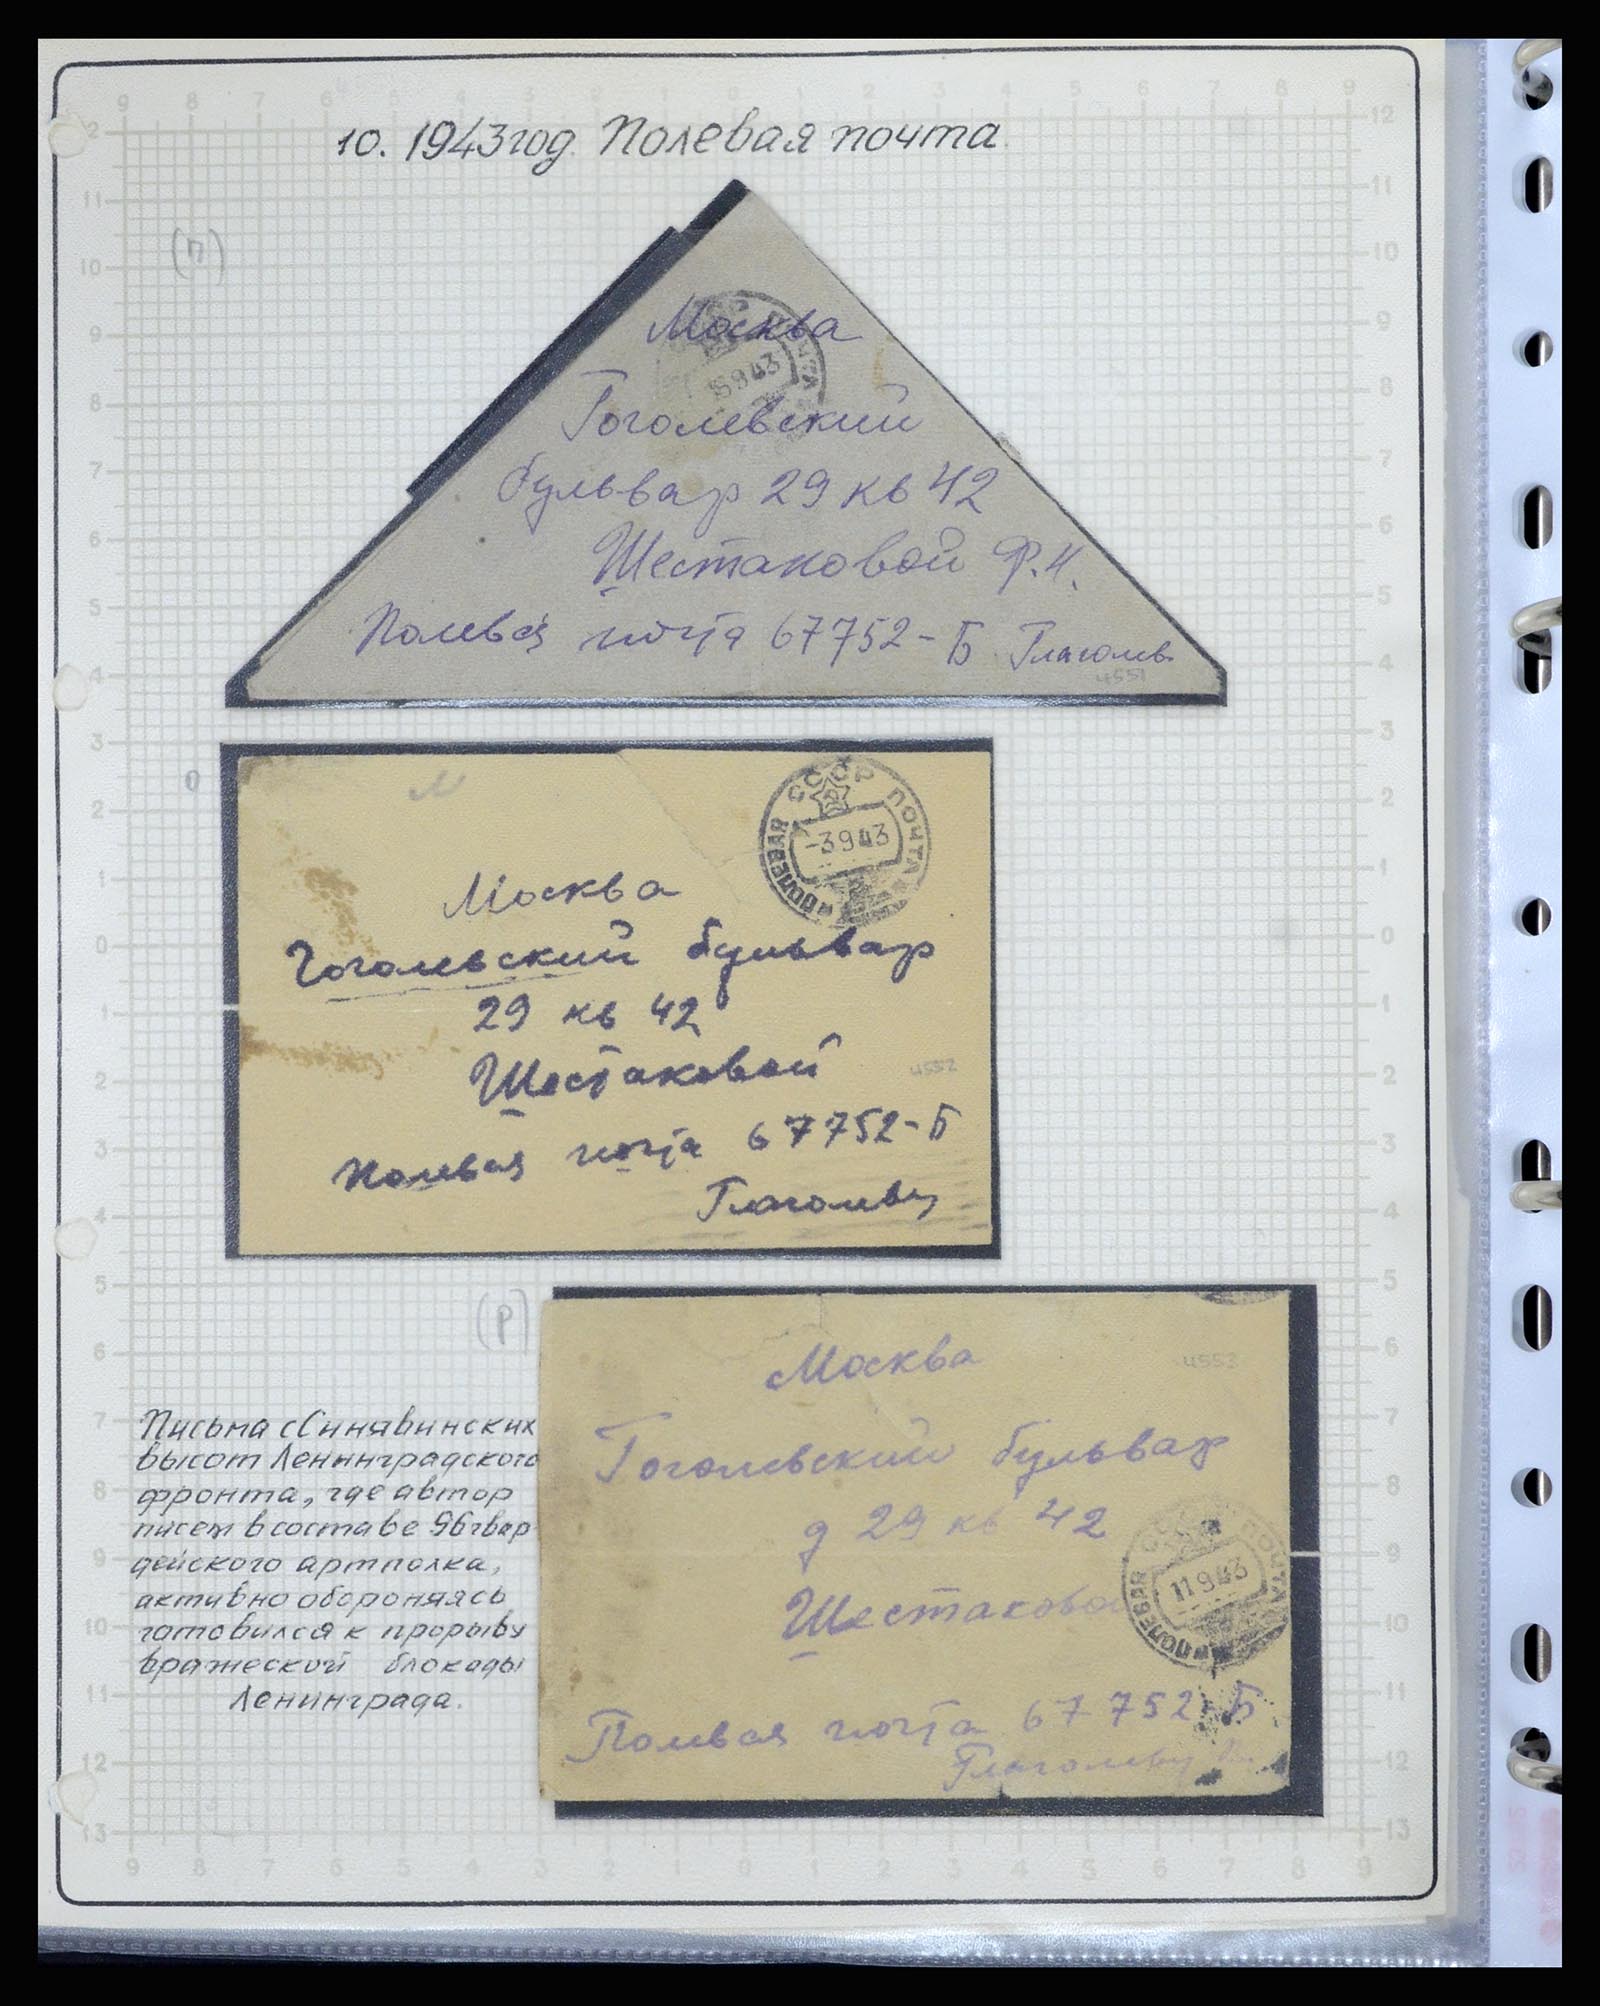 10. 1943 год. Полевая почта
(п)
Москва
Гоголевский
бульвар 29 кв 42
Шестаковой Ф.И.
Полевая почта 67752-Б Глаголев
4551
ПОЧТА
943
СССР ПОЧТА
ПОЛЕВАЯ
-3 9 43
Москва
Гоголевский бульвар
29 кв 42
Шестаковой
4552
Полевая почта 67752-Б
Глаголеву
(р)
Москва
4553
Гоголевский бульвар
д 29 кв 42
Шестаковой
СССР ПОЧТА
ПОЛЕВАЯ
11 9 43
Полевая почта 67752-Б
Глаголеву
Письма с Синявинских
высот Ленинградского
фронта, где автор
писем в составе 96 гвар
дейского артполка,
активно обороняясь
готовился к прорыву
вражеской блокады
Ленинграда.